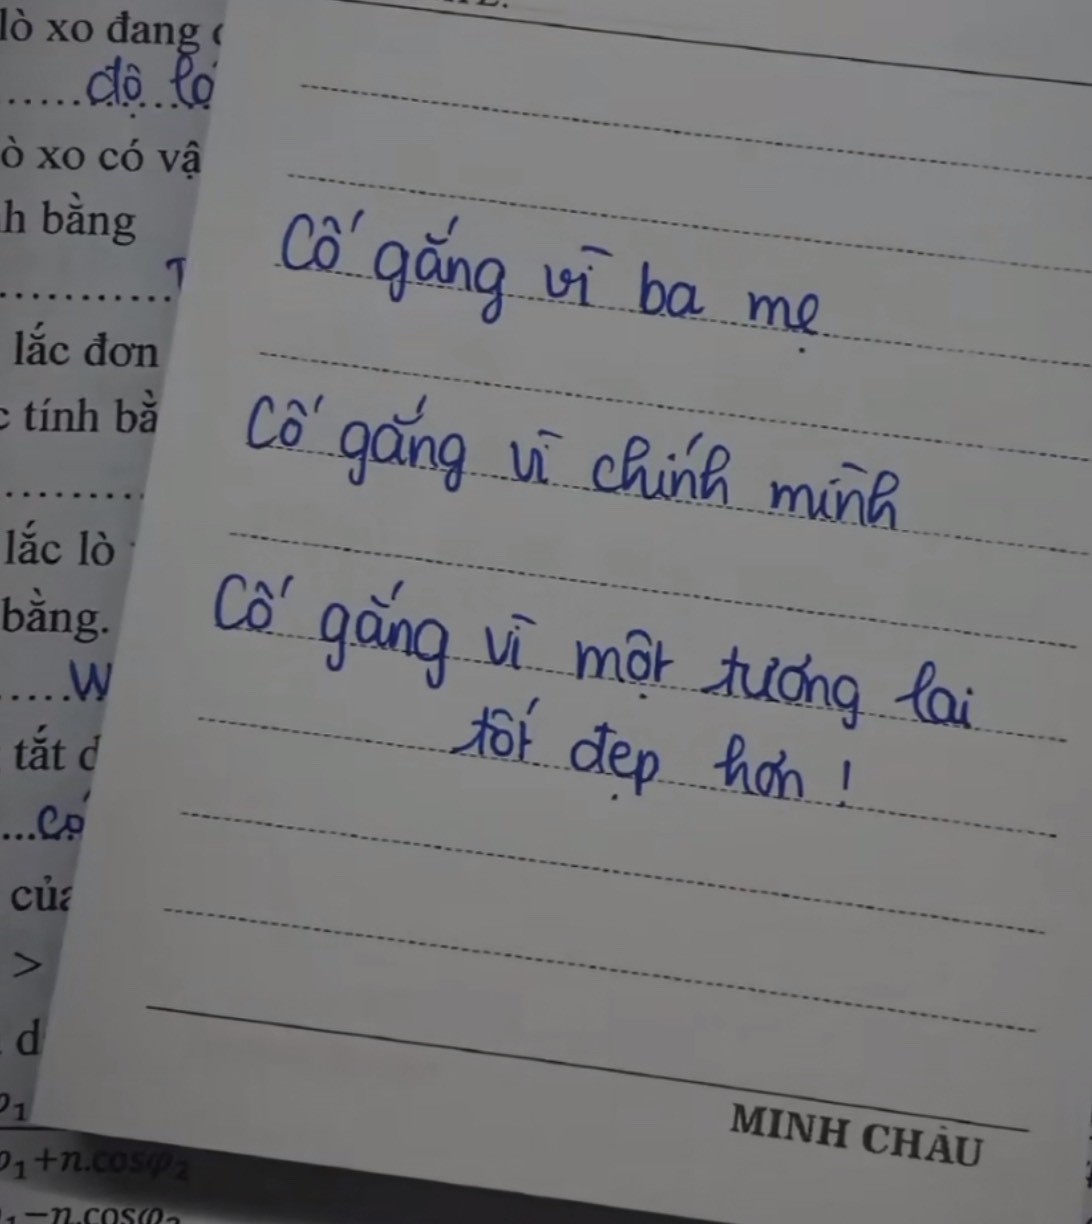 lò xo đang
độ
ò xo có vậ
h bằng
T
lắc đơn
c tính bằ
lắc lò
bằng.
W
tắt d
của
>
d
1
1+n.cosφ2
-n.cosφ2
Cố gắng vì ba mẹ
Cố gắng vì chính mình
Cố gắng vì một tương lai
tốt đẹp hơn !
MINH CHÂU